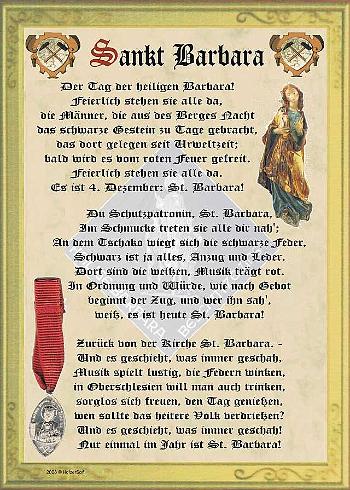 Sankt Barbara
Der Tag der heiligen Barbara!
Feierlich stehen sie alle da,
die Männer, die aus des Berges Nacht
das schwarze Gestein zu Tage gebracht,
das dort gelegen seit Urweltzeit;
bald wird es vom roten Feuer gefreit.
Feierlich stehen sie alle da.
Es ist 4. Dezember: St. Barbara!
Du Schutzpatronin, St. Barbara,
Im Schmucke treten sie alle dir nah';
An dem Tschako wiegt sich die schwarze Feder,
Schwarz ist ja alles, Anzug und Leder.
Dort sind die weißen, Musik trägt rot.
In Ordnung und Würde, wie nach Gebot
beginnt der Zug, und wer ihn sah',
weiß, es ist heute St. Barbara!
Zurück von der Kirche St. Barbara. -
Und es geschieht, was immer geschah,
Musik spielt lustig, die Federn winken,
in Oberschlesien will man auch trinken,
sorglos sich freuen, den Tag genießen,
wen sollte das heitere Volk verdrießen?
Und es geschieht, was immer geschah!
Nur einmal im Jahr ist St. Barbara!